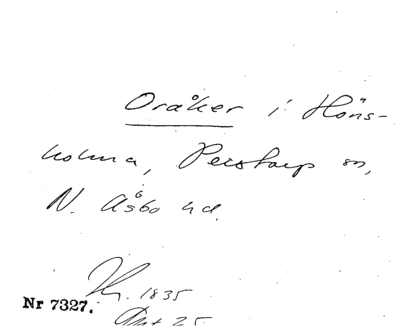 Oråker i Höns-
holma, Perstorp sn,
N. Åsbo hd.
1835
Nr 7327.
25